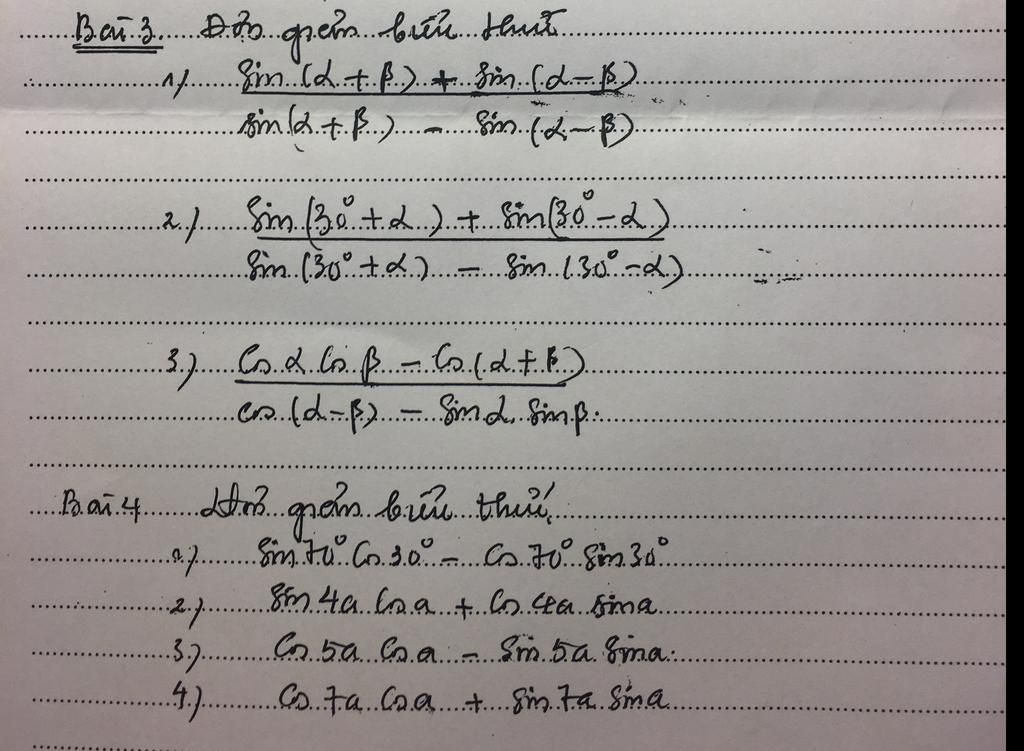 Bài 3. Đơn giản biểu thức
1) sin (α + β) + sin (α - β)
sin (α + β) - sin (α - β)
2) sin (30° + α) + sin (30° - α)
sin (30° + α) - sin (30° - α)
3) Cos α Cos β - Cos (α + β)
cos (α - β) - sin α sin β.
Bài 4 Đơn giản biểu thức
1) sin 70° Cos 30° - Cos 70° sin 30°
2) sin 4a Cos a + Cos 4a sin a
3) Cos 5a Cos a - sin 5a sin a.
4) Cos 7a Cos a + sin 7a sin a